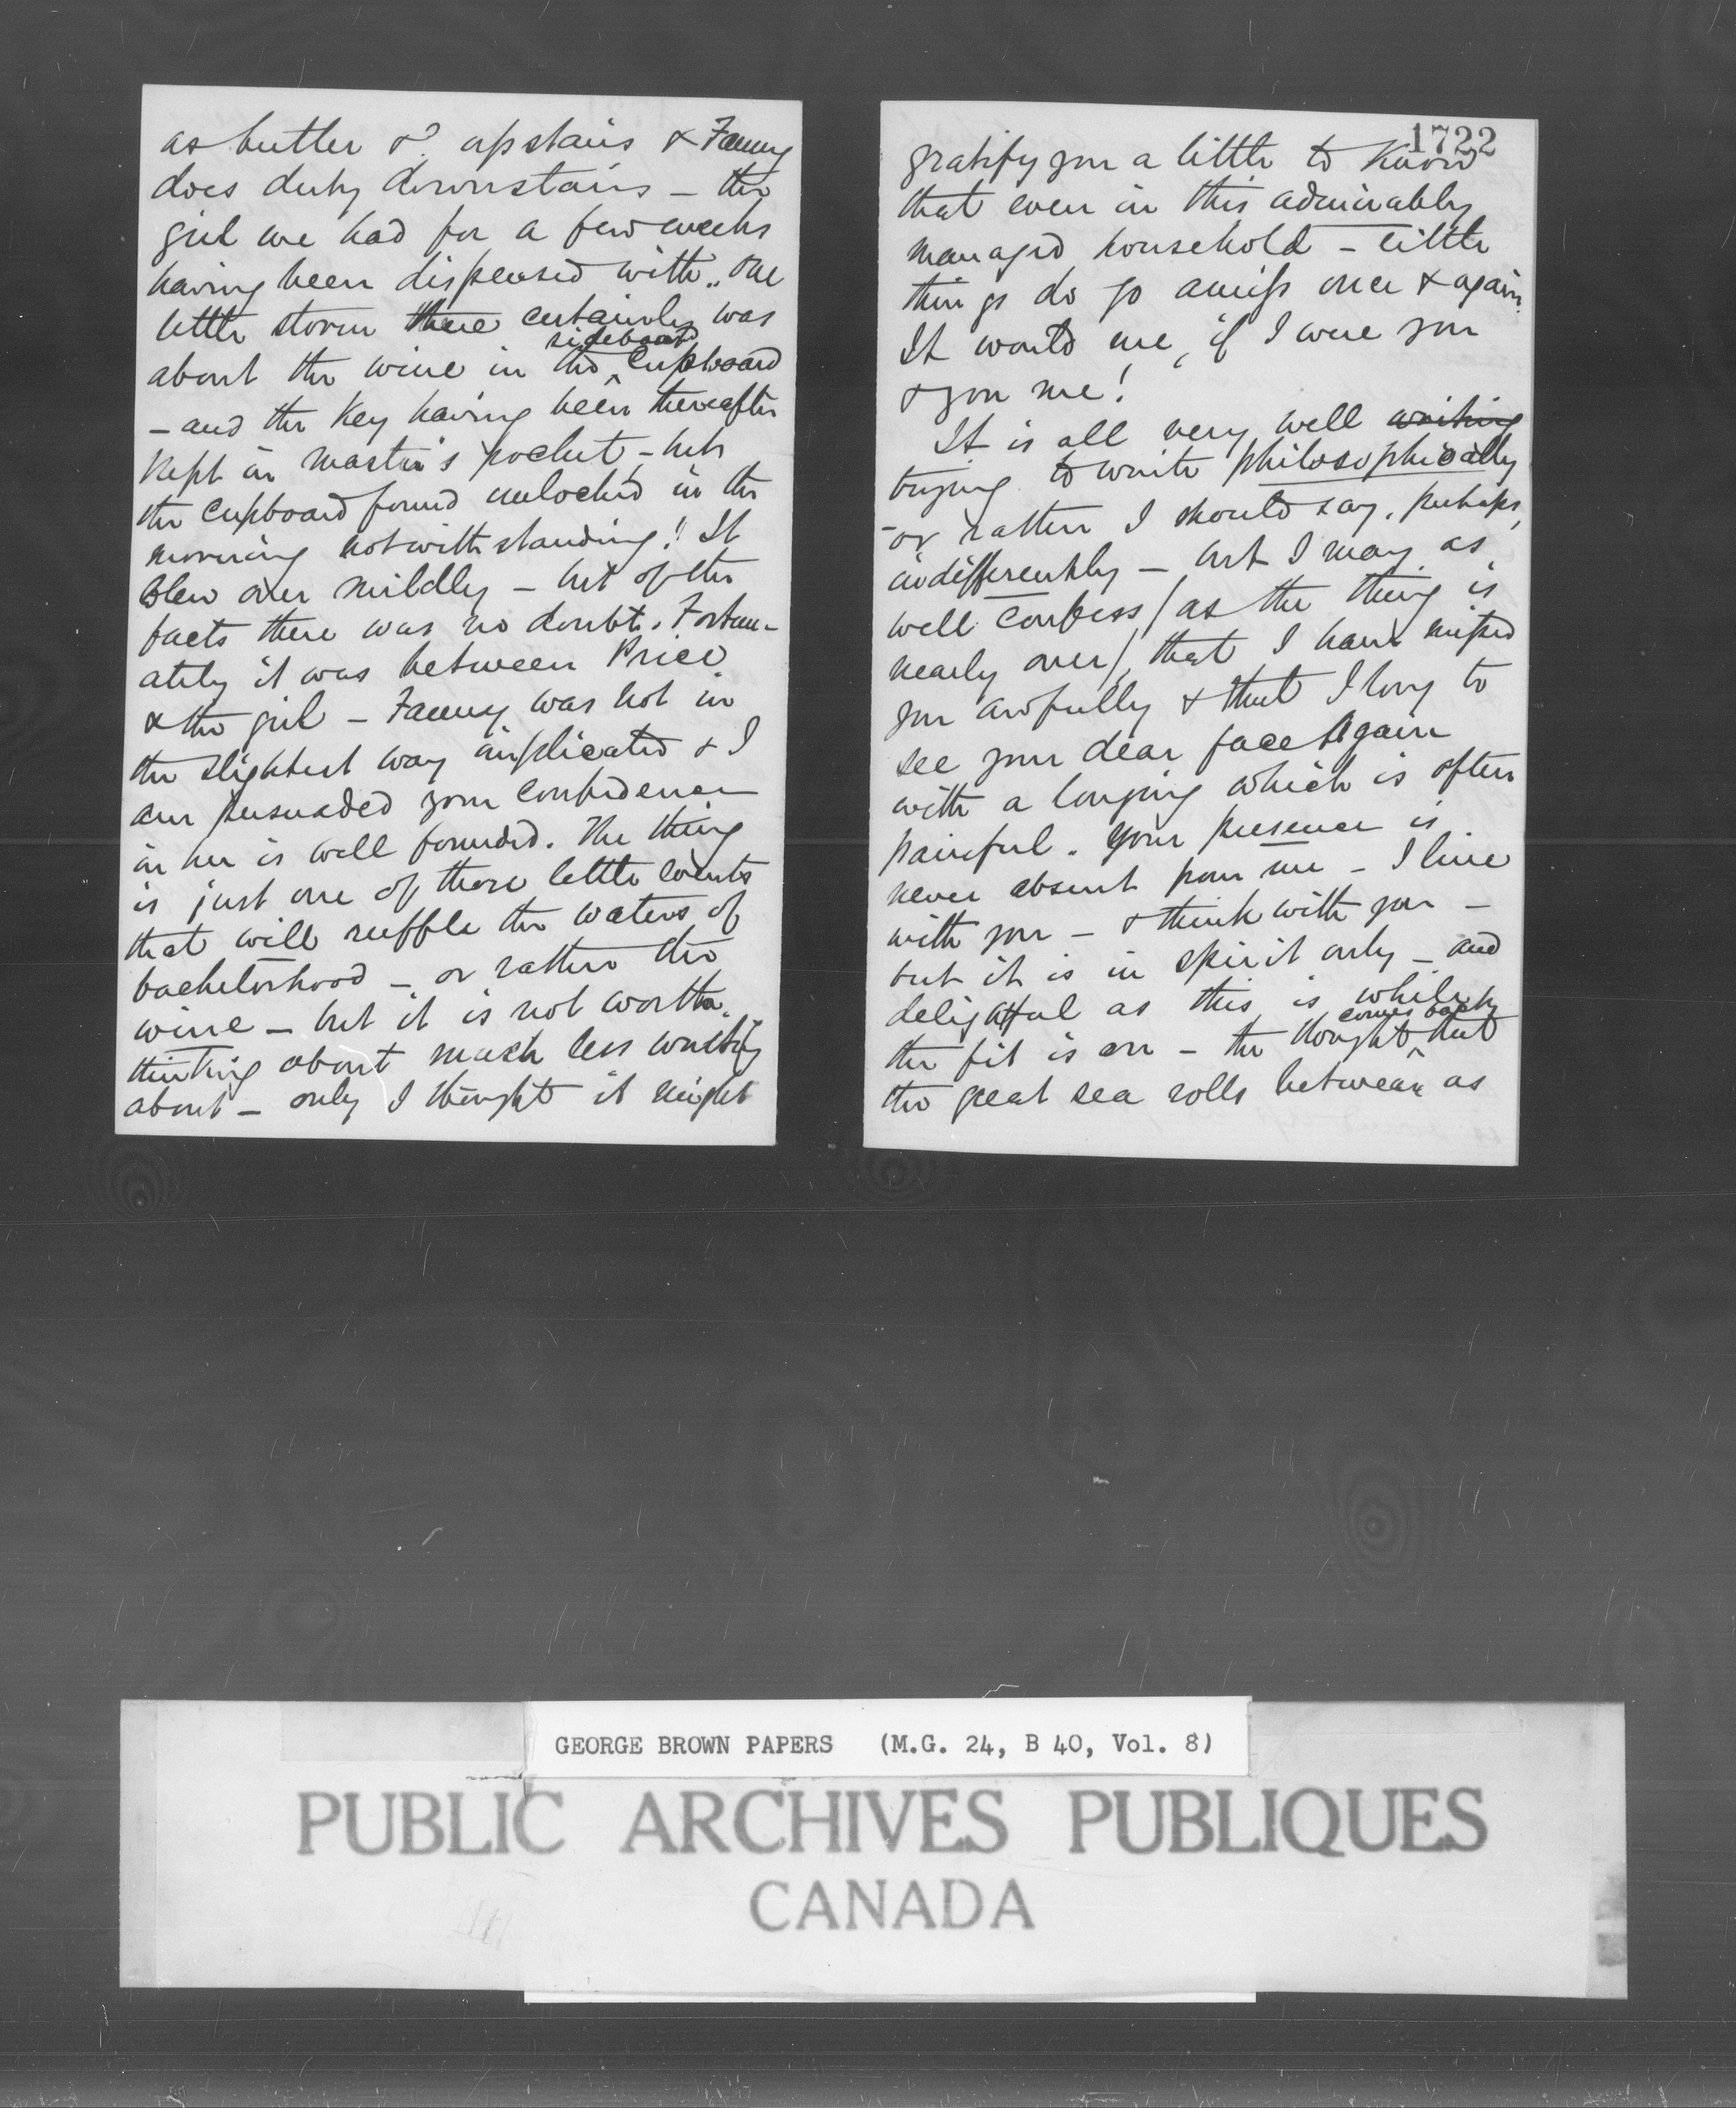 as butler &c. upstairs & Fanny
does duty downstairs – the
girl we had for a few weeks
having been dispensed with.. One
little storm there certainly was
sideboard
about the wine in the ^ cupboard
– and the key having been thereafter
kept in master's pocket – but
the cupboard found unlocked in the
morning notwithstanding! It
blew over mildly – but of the
facts there was no doubt. Fortun-
ately it was between Price
& the girl – Fanny was not in
the slightest way implicated & I
am persuaded your confidence
in her is well founded. The thing
is just one of those little events
that will ruffle the waters of
bachelorhood – or rather the
wine – but it is not worth
thinking about much less writing
about – only I thought it might
1722
gratify you a little to know
that even in this admirably
managed household – little
things do go amiss once & again.
It would me, if I were you
& you me!
It is all very well writing
trying to write philosophically
– or rather I should say, perhaps,
indifferently – but I may as
well confess / as the thing is
nearly over /, that I have missed
you awfully & that I long to
see your dear face again
with a longing which is often
painful. Your presence is
never absent from me – I live
with you – & think with you –
but it is in spirit only – and
delightful as this is while
comes back
the fit is on – the thought ^ that
the great sea rolls between as
GEORGE BROWN PAPERS (M.G. 24, B 40, Vol. 8)
PUBLIC ARCHIVES PUBLIQUES
CANADA